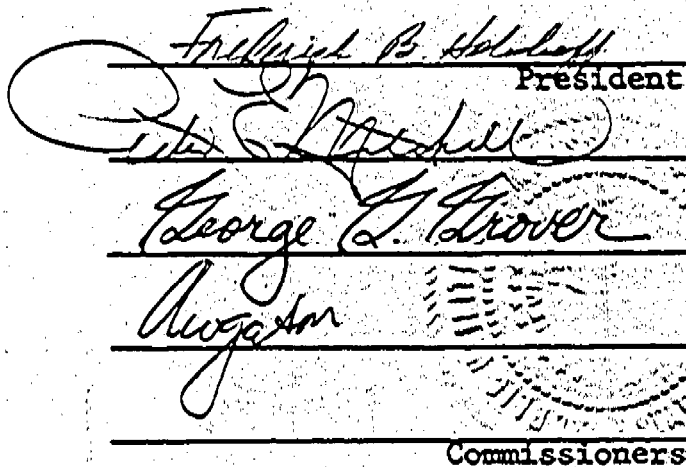 Frederick B. Holoboff
President
Peter E. Mitchell
George G. Grover
Commissioners